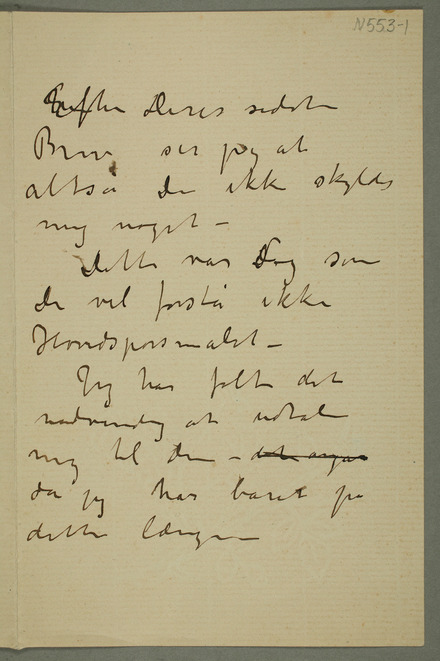 N553-1
Efter Deres sidste
Brev ser jeg at
altså De ikke skylder
mig noget –
Dette var dog som
De vel forstå ikke
Hovedspørsmalet –
Jeg har følt det
nødvendig at udtale
mig til Dem –
da jeg har baret på
dette længe